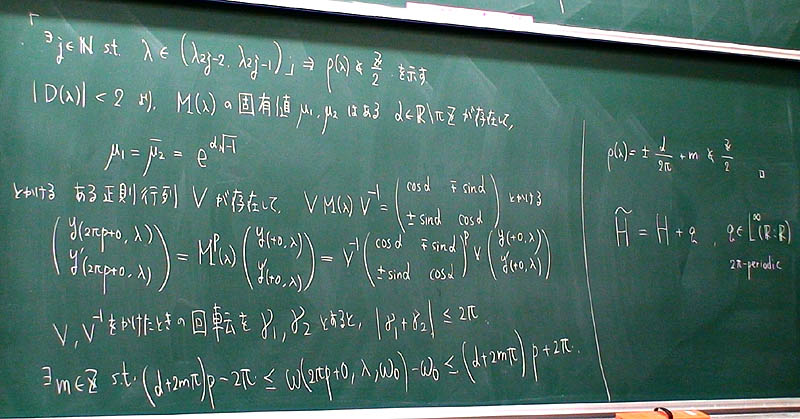 「∃j∈ℕ s.t. λ∈(λ2j-2, λ2j-1)」⇒ ρ(λ)∉ℤ/2 を示す
|D(λ)|<2 より, M(λ)の固有値 μ₁, μ₂ はある d∈ℝ\πℤ が存在して,
μ₁ = μ̄₂ = e^{d√-1}
とかける ある正則行列 V が存在して, V M(λ) V⁻¹ = (cos d ∓sin d ; ±sin d cos d) とかける
(y(2πp+0, λ) ; y'(2πp+0, λ)) = M^p(λ) (y(+0, λ) ; y'(+0, λ)) = V⁻¹ (cos d ∓sin d ; ±sin d cos d)^p V (y(+0, λ) ; y'(+0, λ))
V, V⁻¹をかけたときの回転を γ₁, γ₂ とすると, |γ₁+γ₂| ≤ 2π.
∃m∈ℤ s.t. (d+2mπ)p-2π ≤ ω(2πp+0, λ, ω₀)-ω₀ ≤ (d+2mπ)p+2π.
ρ(λ) = ± d/2π + m ∉ ℤ/2 □
H̃ = H + q, q∈L^∞(ℝ:ℝ)
2π-periodic